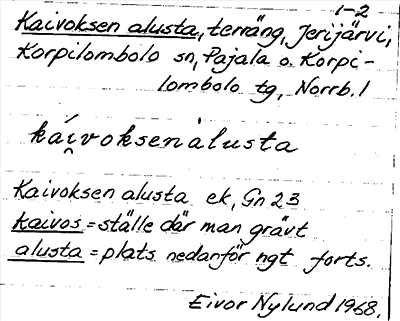 1-2
Kaivoksen alusta, terräng, Jerijärvi,
Korpilombolo sn, Pajala o. Korpi-
lombolo tg, Norrb. l
kái̯voksenàlusta
Kaivoksen alusta ek, Gn 23
kaivos = ställe där man grävt
alusta = plats nedanför ngt forts.
Eivor Nylund 1968.